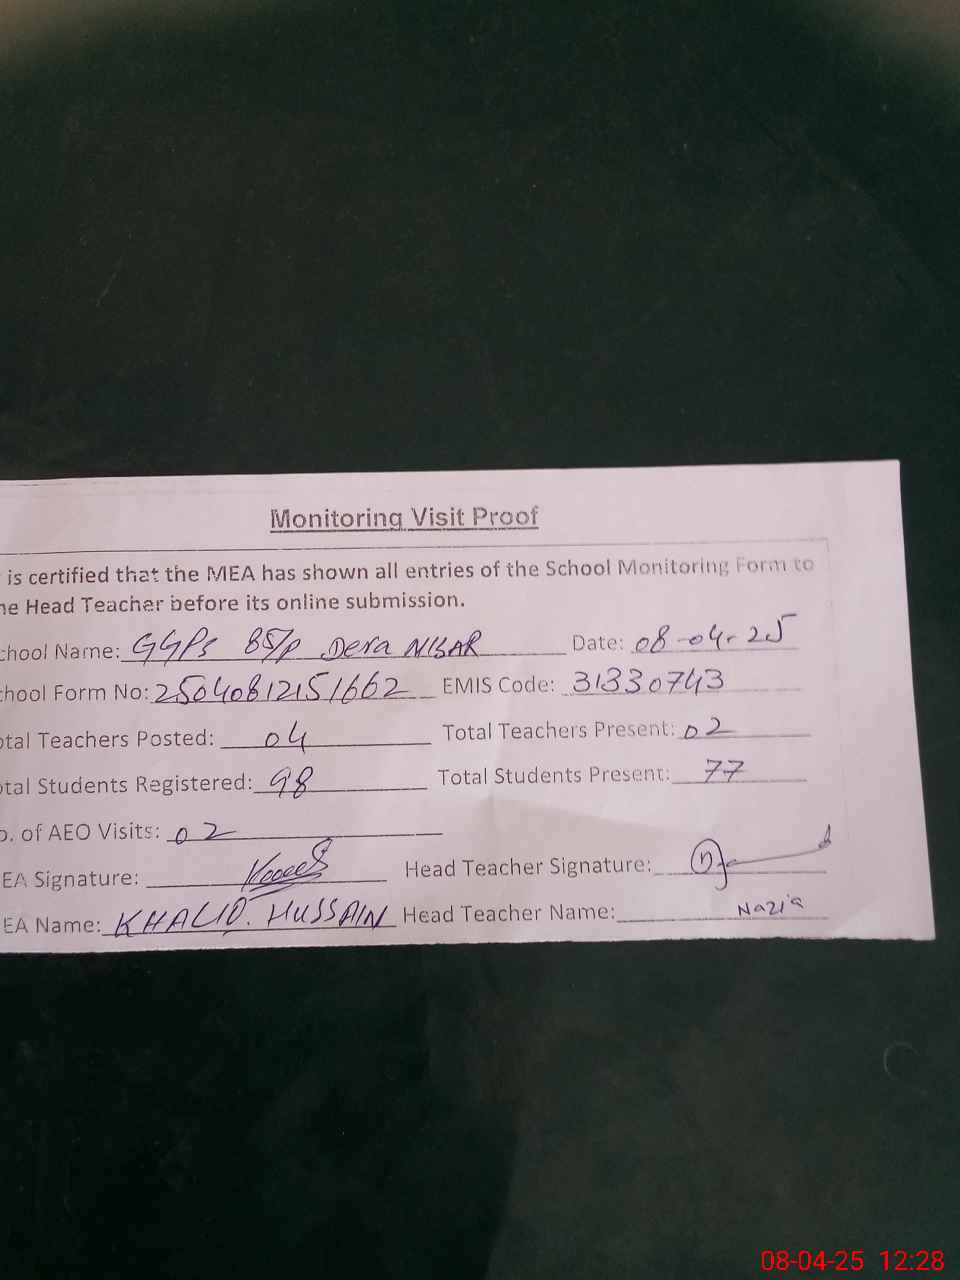 Monitoring Visit Proof
is certified that the MEA has shown all entries of the School Monitoring Form to
he Head Teacher before its online submission.
chool Name: GGPS 85/P Dera NISAR Date: 08-04-25
chool Form No: 25040812151662 EMIS Code: 31330743
otal Teachers Posted: 04 Total Teachers Present: 02
otal Students Registered: 98 Total Students Present: 77
o. of AEO Visits: 02
EA Signature: Head Teacher Signature:
EA Name: KHALID. HUSSAIN Head Teacher Name: Nazia
08-04-25 12:28